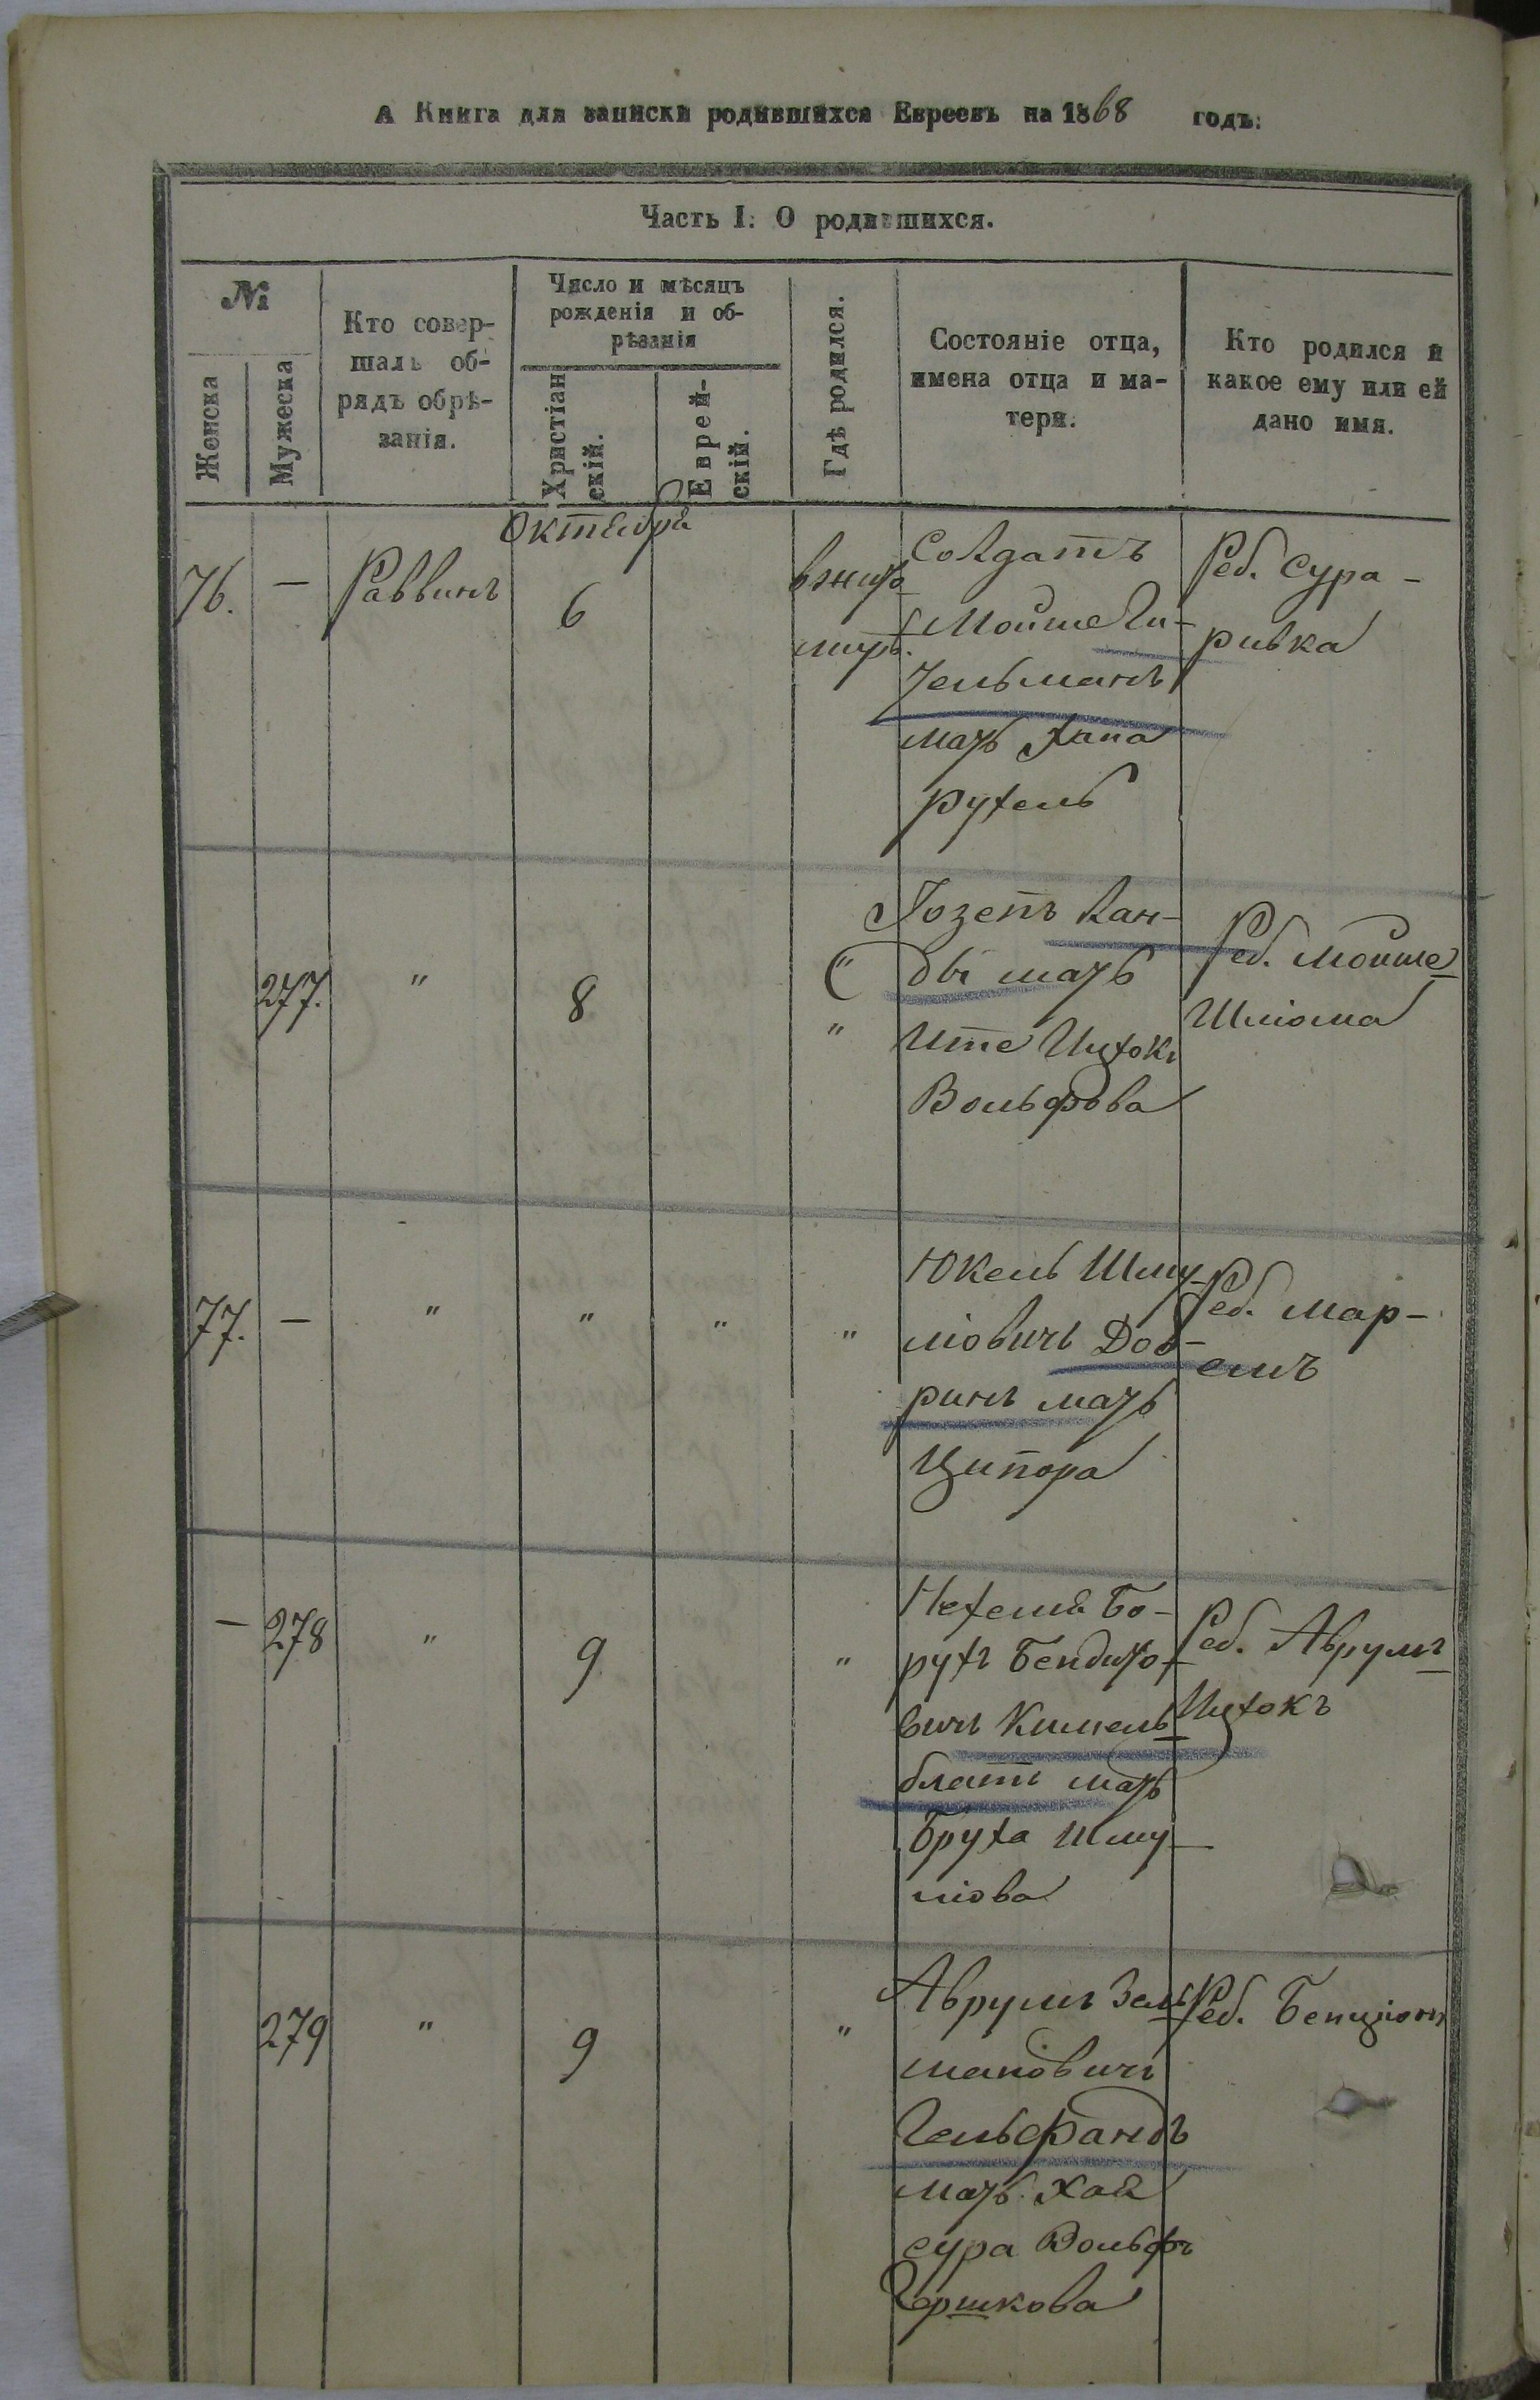 А Книга для записки родившихся Евреевъ на 1868 годъ:
Часть I: О родившихся.
№
Женска
Мужеска
Кто совер-
шалъ об-
рядъ обрѣ-
занія.
Число и мѣсяцъ
рожденія и об-
рѣзанія
Христіан
скій.
Еврей-
скій.
Гдѣ родился.
Состояніе отца,
имена отца и ма-
тери.
Кто родился и
какое ему или ей
дано имя.
Октября
76. — Раввинъ 6
вжито
мирѣ.
Солдатъ
Мойше Ги-
тельманъ
мать Хана
Рухель
Реб. Сура-
ривка
277. " 8 "
"
Іозепъ Кан-
ды мать
Ите Ицхокъ
Вольфова
Реб. Мойше
Шліома
77. — " " " "
Юкель Шму-
ліовичъ Доб-
ринъ мать
Ципора
Реб. Мар-
емъ
— 278 " 9 "
Нехемія Бо-
рухъ Бендито-
вичъ Кимель
блатъ мать
Бруха Шму-
ліова
Реб. Аврумъ
Ицхокъ
279 " 9 "
Аврумъ Зель
мановичъ
Гельфандъ
мать Хая
сура Вольфъ
Гершкова
Реб. Бенціонъ